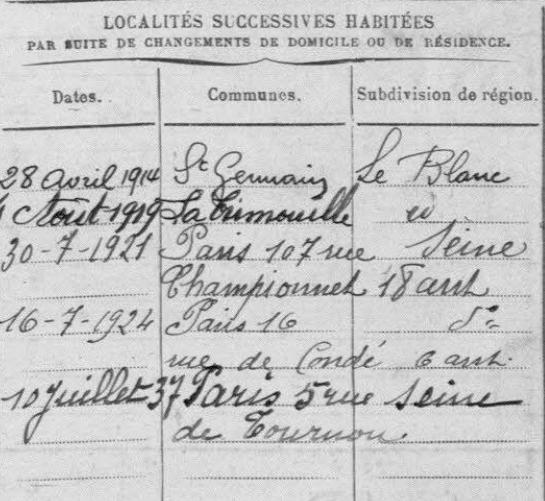 LOCALITÉS SUCCESSIVES HABITÉES
PAR SUITE DE CHANGEMENTS DE DOMICILE OU DE RÉSIDENCE.
Dates. Communes. Subdivision de région.
28 avril 1914 St Germain Le Blanc
1 Aout 1919 La Trimouille id
30-7-1921 Paris 107 rue Seine
Championnet 18 arrt
16-7-1924 Paris 16 do
rue de Condé 6 arrt.
10 Juillet 37 Paris 5 rue Seine
de Tournon.